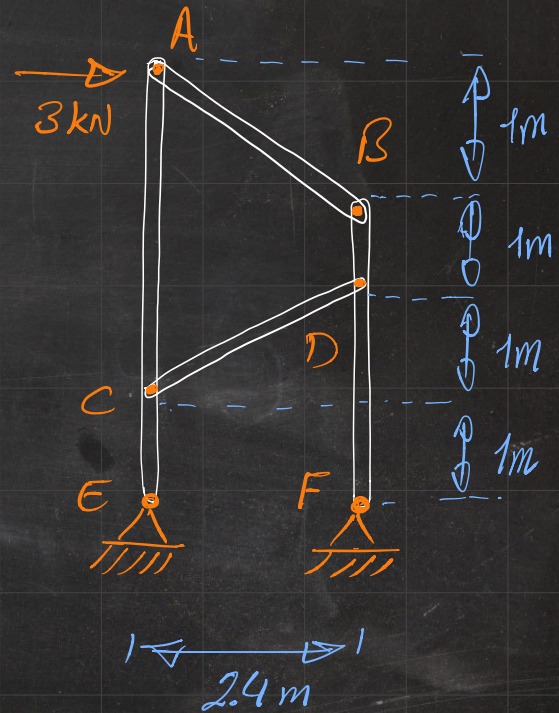 A
3 kN
1m
B
1m
D
1m
C
1m
E
F
2.4 m